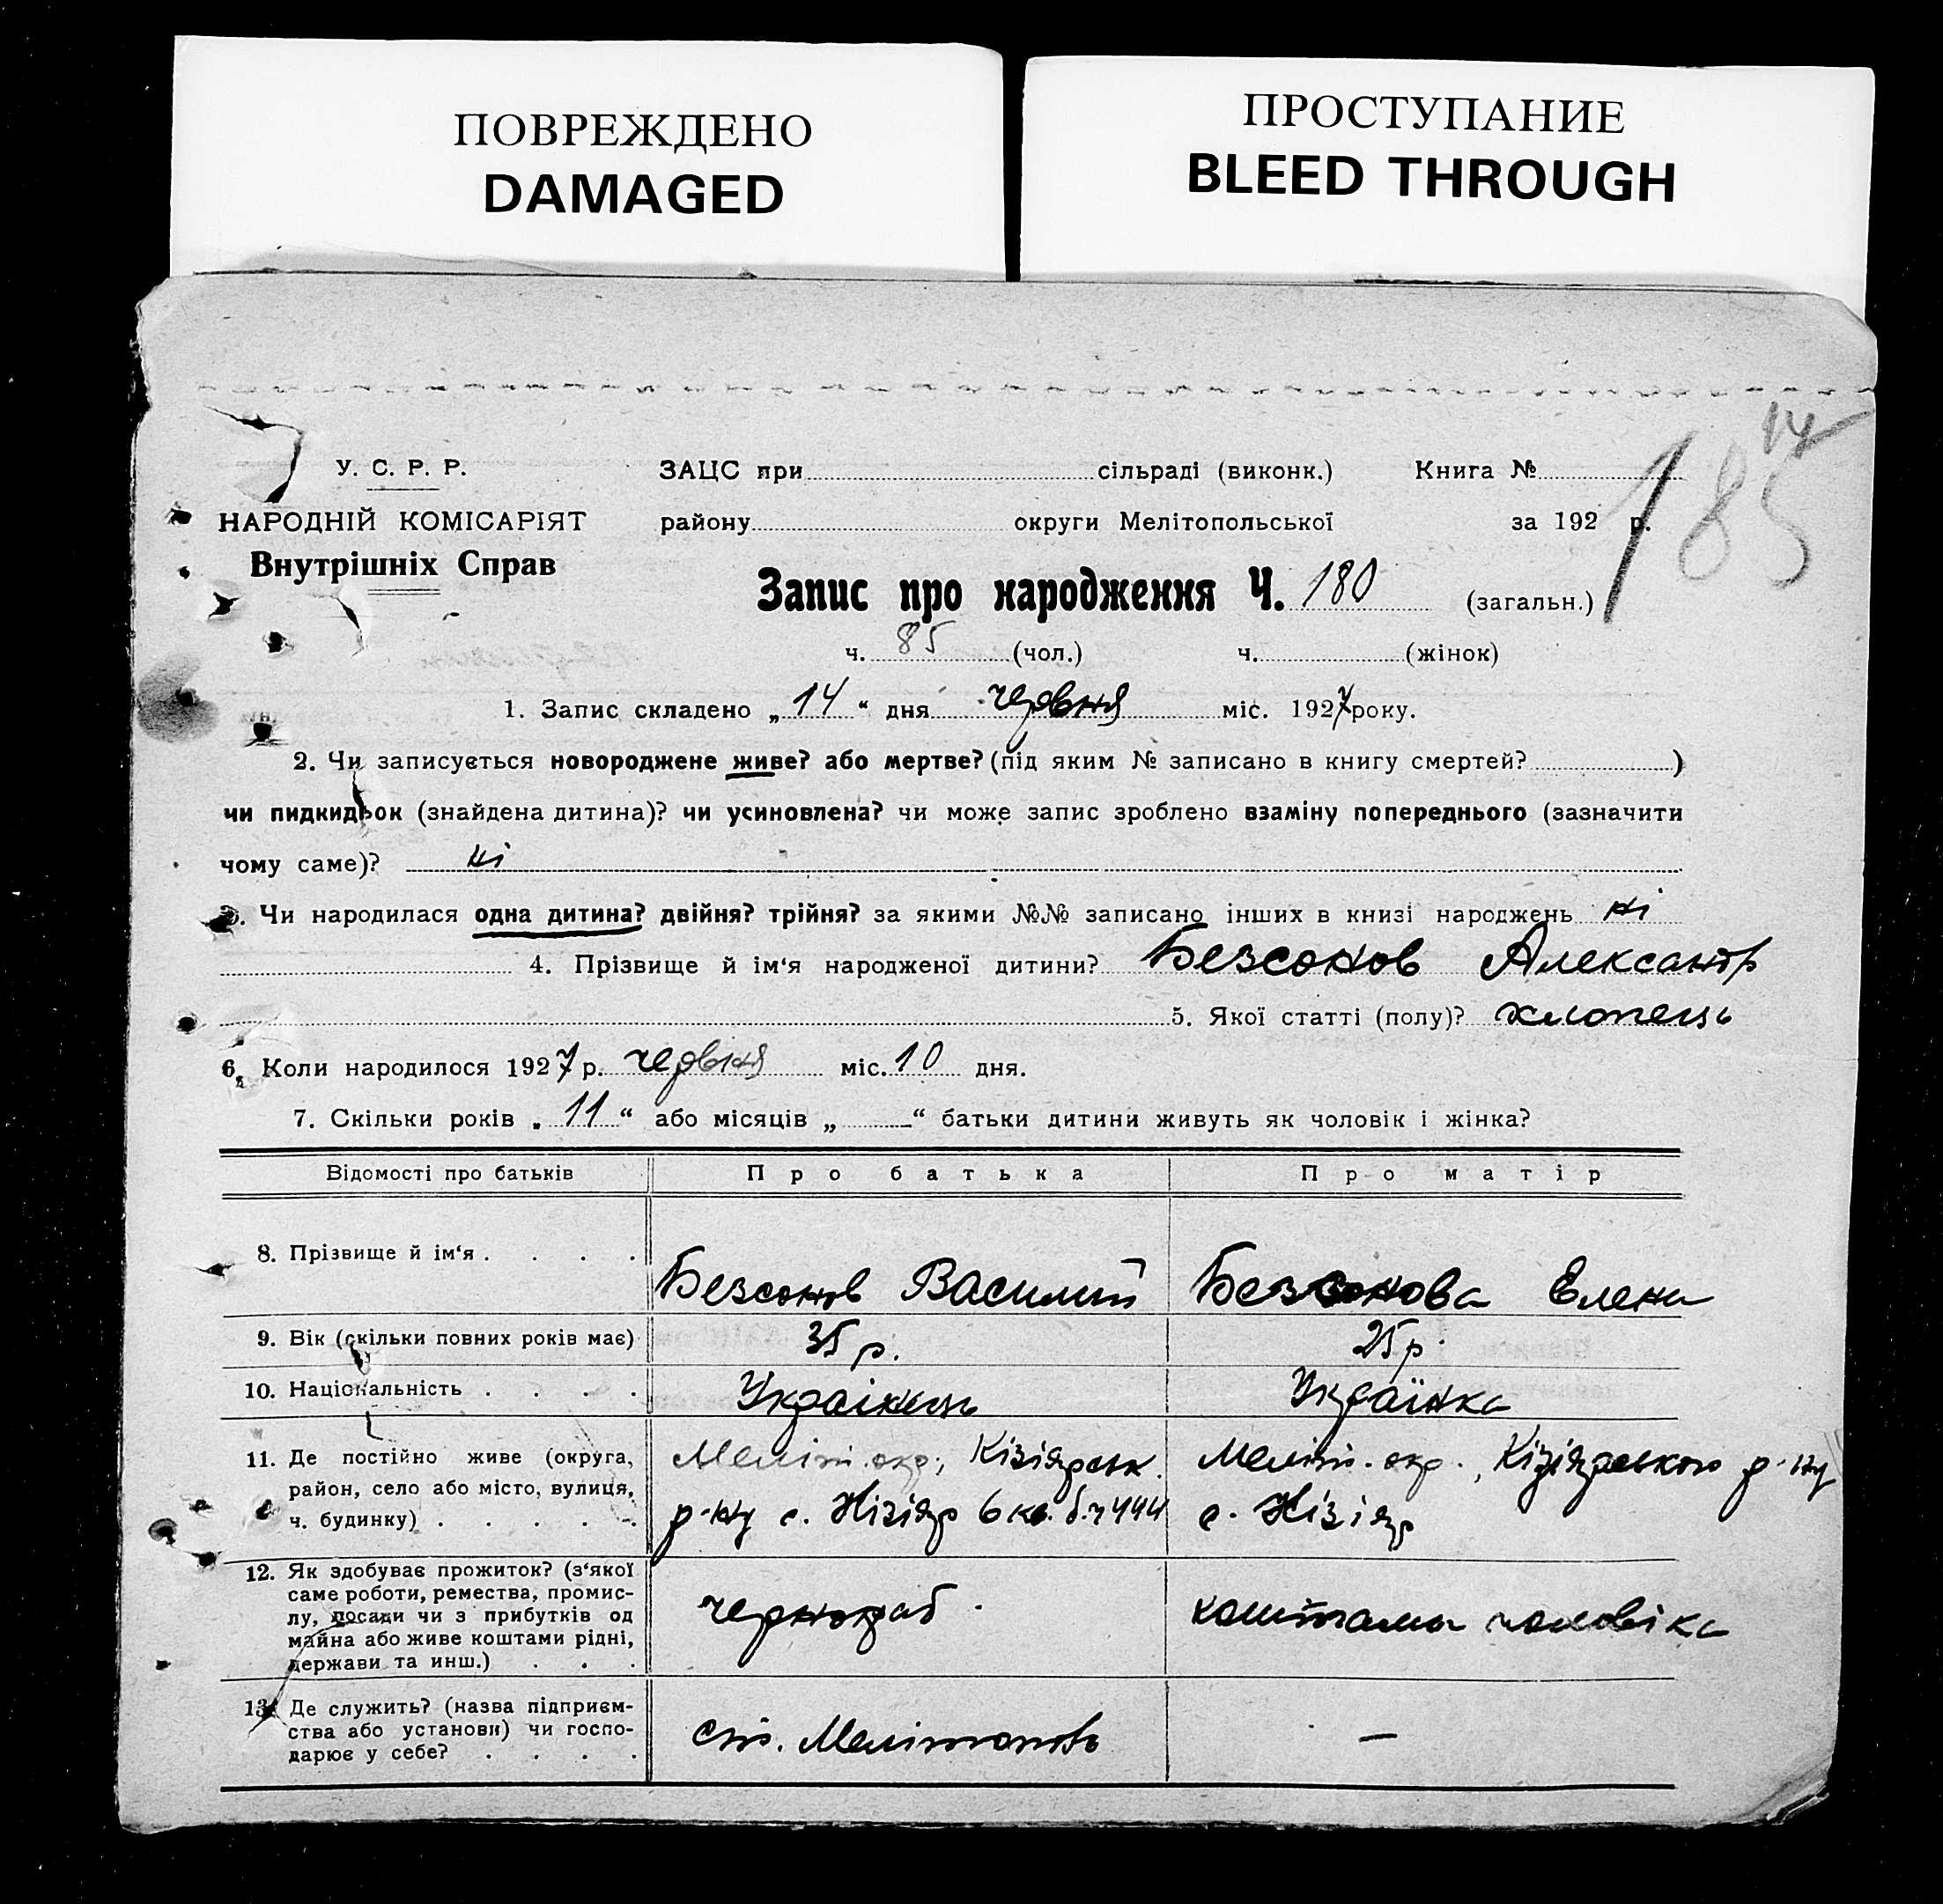 ПОВРЕЖДЕНО
DAMAGED
ПРОСТУПАНИЕ
BLEED THROUGH
14
185
У. С. Р. Р.
НАРОДНІЙ КОМІСАРІЯТ
Внутрішніх Справ
ЗАЦС при сільраді (виконк.) Книга №
району округи Мелітопольської за 192 р.
Запис про народження Ч. 180 (загальн.)
ч. 85 (чол.) ч. (жінок)
1. Запис складено „14“ дня червня міс. 1927 року.
2. Чи записується новороджене живе? або мертве? (під яким № записано в книгу смертей? )
чи пидкидьок (знайдена дитина)? чи усиновлена? чи може запис зроблено взаміну попереднього (зазначити
чому саме)? ні
3. Чи народилася одна дитина? двійня? трійня? за якими №№ записано інших в книзі народжень ні
4. Прізвище й ім‘я народженої дитини? Безсонов Александр
5. Якої статті (полу)? хлопець
6. Коли народилося 1927 р. червня міс. 10 дня.
7. Скільки років „11“ або місяців „—“ батьки дитини живуть як чоловік і жінка?
Відомості про батьків Про батька Про матір
8. Прізвище й ім‘я . . . . Безсонов Василий Безсонова Елена
9. Вік (скільки повних років має) 35 р. 25 р.
10. Національність . . . . Українець Українка
11. Де постійно живе (округа,
район, село або місто, вулиця,
ч. будинку) . . . . .
Меліт. окр., Кізіярськ.
р-ну с. Кізіяр 6 кв. б. ч 444
Меліт. окр., Кізіярського р-ну
с. Кізіяр
12. Як здобуває прожиток? (з‘якої
саме роботи, ремества, промис-
лу, посади чи з прибутків од
майна або живе коштами рідні,
держави та инш.) . . .
чорнораб.
коштами чоловіка
13. Де служить? (назва підприєм-
ства або установи) чи госпо-
дарює у себе? . . . .
ст. Мелітополь
—